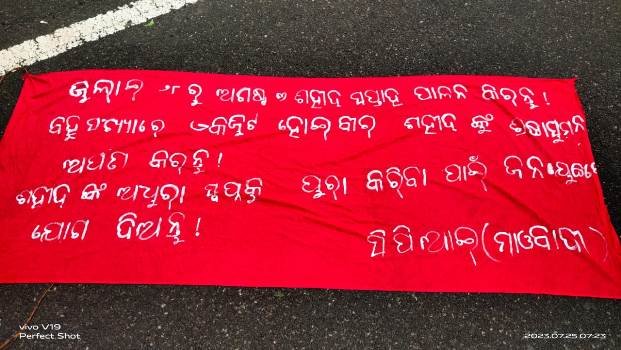 ଜୁଲାଇ ୨୮ ରୁ ଅଗଷ୍ଟ ୩ ଶହୀଦ ସପ୍ତାହ ପାଳନ କରନ୍ତୁ !
ବହୁ ସଂଖ୍ୟାରେ ଏକଜୁଟ ହୋଇ ବୀର ଶହୀଦ ଙ୍କୁ ଶ୍ରଦ୍ଧାସୁମନ
ଅର୍ପଣ କରନ୍ତୁ !
ଶହୀଦ ଙ୍କ ଅଧୁରା ସ୍ୱପ୍ନକୁ ପୁରା କରିବା ପାଇଁ ଜନ
ଯୋଗ ଦିଅନ୍ତୁ !
ସିପିଆଇ (ମାଓବାଦୀ)
vivo V19
Perfect Shot
2023.07.25 07:23